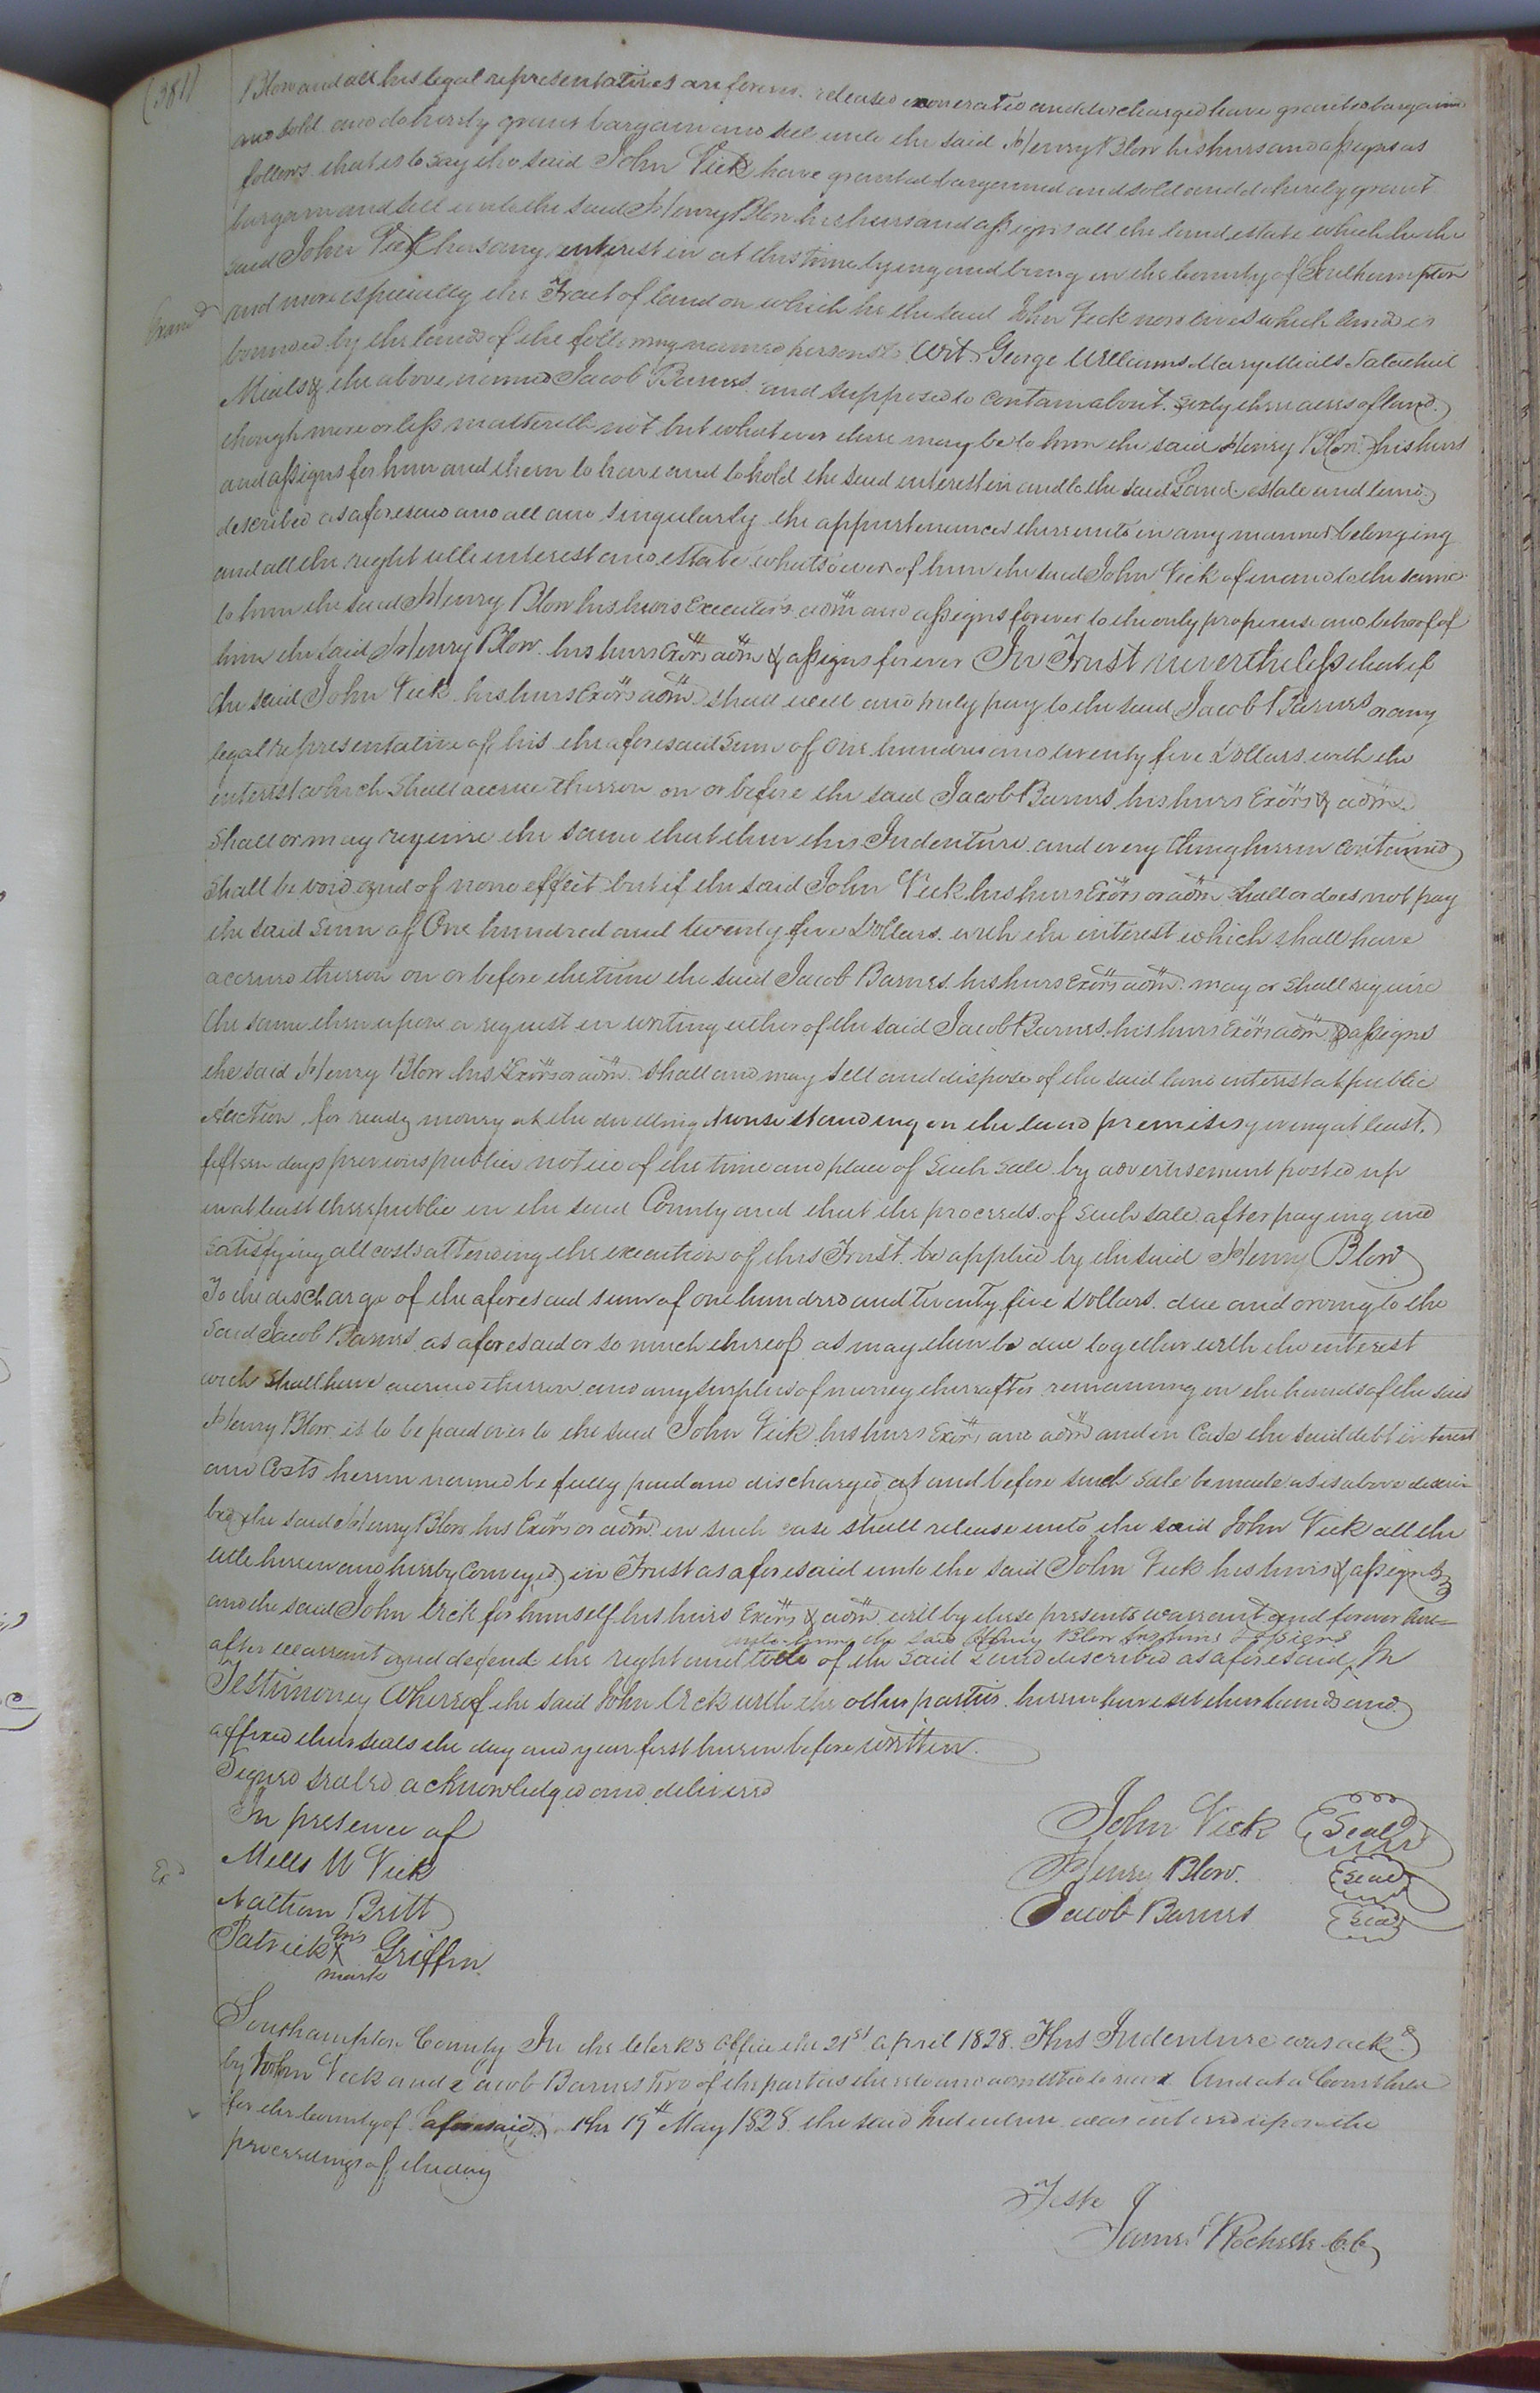 (381)
Blow and all his legal representatives are forever released exonerated and discharged have granted bargained
and sold and do hereby grant bargain and sell unto the said Henry Blow his heirs and assigns as
follows that is to say the said John Vick have granted bargained and sold and do hereby grant
bargain and sell unto the said Henry Blow his heirs and assigns all the land estate which he the
said John Vick has any interest in at this time lying and being in the County of Southampton
and more especially the Tract of land on which he the said John Vick now lives which land is
bounded by the lands of the following named persons to Wit George Williams Mary Mials
Mials & the above named Jacob Barnes and supposed to contain about sixty three acres of land
though more or less mattereth not but whatever there may be to him the said Henry Blow his heirs
and assigns for him and them to have and to hold the said interest in and to the said Land estate and land
described as aforesaid and all and singularly the appurtenances thereunto in any manner belonging
and all the right title interest and estate whatsoever of him the said John Vick of in and to the same
to him the said Henry Blow his heirs Executors adm and assigns forever to the only proper use and behoof of
him the said Henry Blow his heirs Exõrs adm̃ & assigns forever In Trust nevertheless that if
the said John Vick his heirs Exõrs adm̃ shall well and truly pay to the said Jacob Barnes or any
legal representative of his the aforesaid Sum of One hundred and twenty five Dollars with the
interest which Shall accrue thereon on or before the said Jacob Barnes his heirs Exõrs & adm̃
Shall or may require the same that then this Indenture and every thing herein contained
Shall be void and of none effect but if the said John Vick his heirs Exõrs or adm̃ shall or does not pay
the said Sum of One hundred and twenty five Dollars with the interest which shall have
accrued thereon on or before the time the said Jacob Barnes his heirs Exõrs adm̃ may or Shall require
the same then upon a request in writing either of the said Jacob Barnes his heirs Exõrs adm̃ & assigns
the said Henry Blow his Exõrs or adm̃ shall and may sell and dispose of the said land interest at public
Auction for ready money at the dwelling house standing on the land premises giving at least
fifteen days previous public notice of the time and place of Such Sale by advertisement posted up
in at least three public in the said County and that the proceeds of Such sale after paying and
Satisfying all costs attending the execution of this Trust be applied by the said Henry Blow
To the discharge of the aforesaid sum of one hundred and twenty five Dollars due and owing to the
Said Jacob Barnes as aforesaid or so much thereof as may then be due together with the interest
wich Shall have accrued thereon and any surplus of money thereafter remaining in the hands of the said
Henry Blow is to be paid over to the said John Vick his heirs Exõrs and adm̃ and in Case the said debt interest
and Costs herein named be fully paid and discharged at and before such Sale be made as is above descri-
bed the said Henry Blow his Exõrs or adm̃ in such case shall release unto the said John Vick all the
title herein and hereby Conveyed in Trust as aforesaid unto the said John Vick his heirs & assigns
and the said John Vick for himself his heirs Exõrs & adm̃ will by these presents warrant and forever here=
unto him the said Henry Blow his heirs & assigns
after warrant and defend the right and title of the Said Land described as aforesaid In
Testimoney Whereof the said John Vick with the other parties herein have set their hands and
affixed their seals the day and year first herein before written.
Signed sealed acknowledged and delivered
In presence of
Mells W Vick
Nathan Britt
Patrick his X mark Griffin
John Vick (Seal)
Henry Blow. (Seal)
Jacob Barnes (Seal)
Exd
Southampton County In the Clerks Office the 21st April 1828. This Indenture was ackd
by John Vick and Jacob Barnes two of the parties thereto and admitted to record And at a Court held
for the County of aforesaid the 19th May 1828 the said Indenture was entered upon the
proceedings of the day
Teste
James Rochelle C.C.